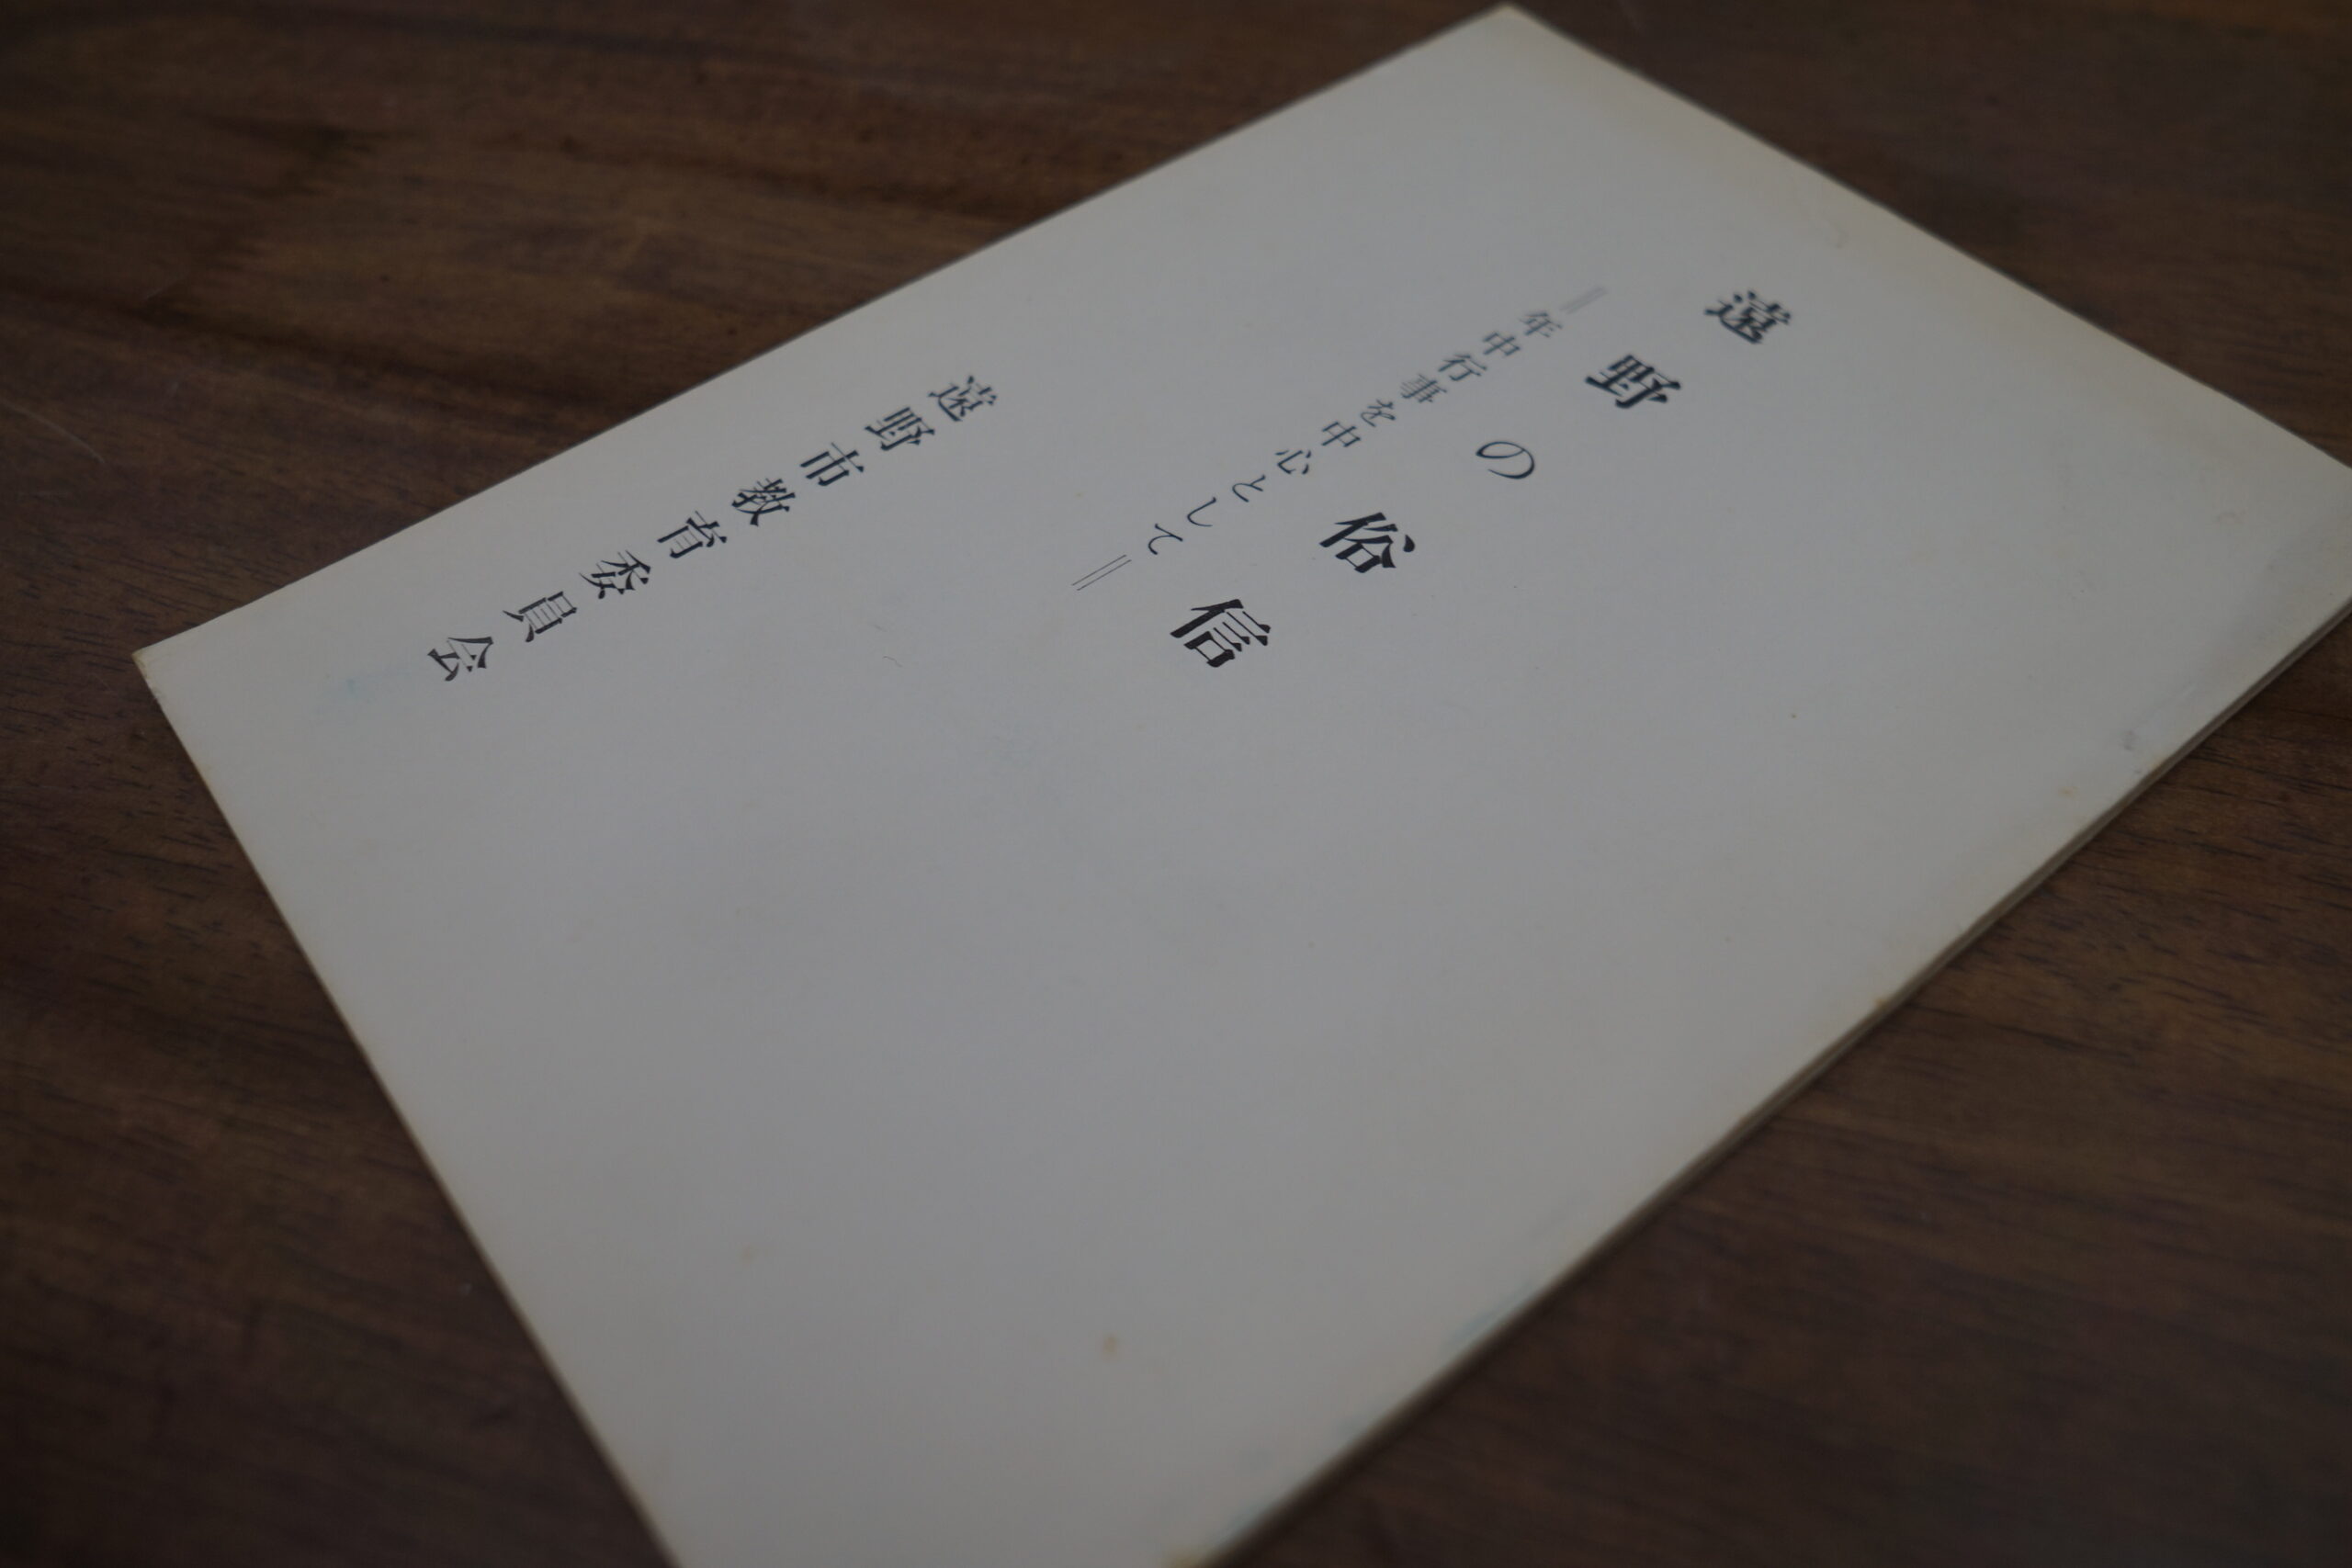 遠野の俗信
＝年中行事を中心として＝
遠野市教育委員会